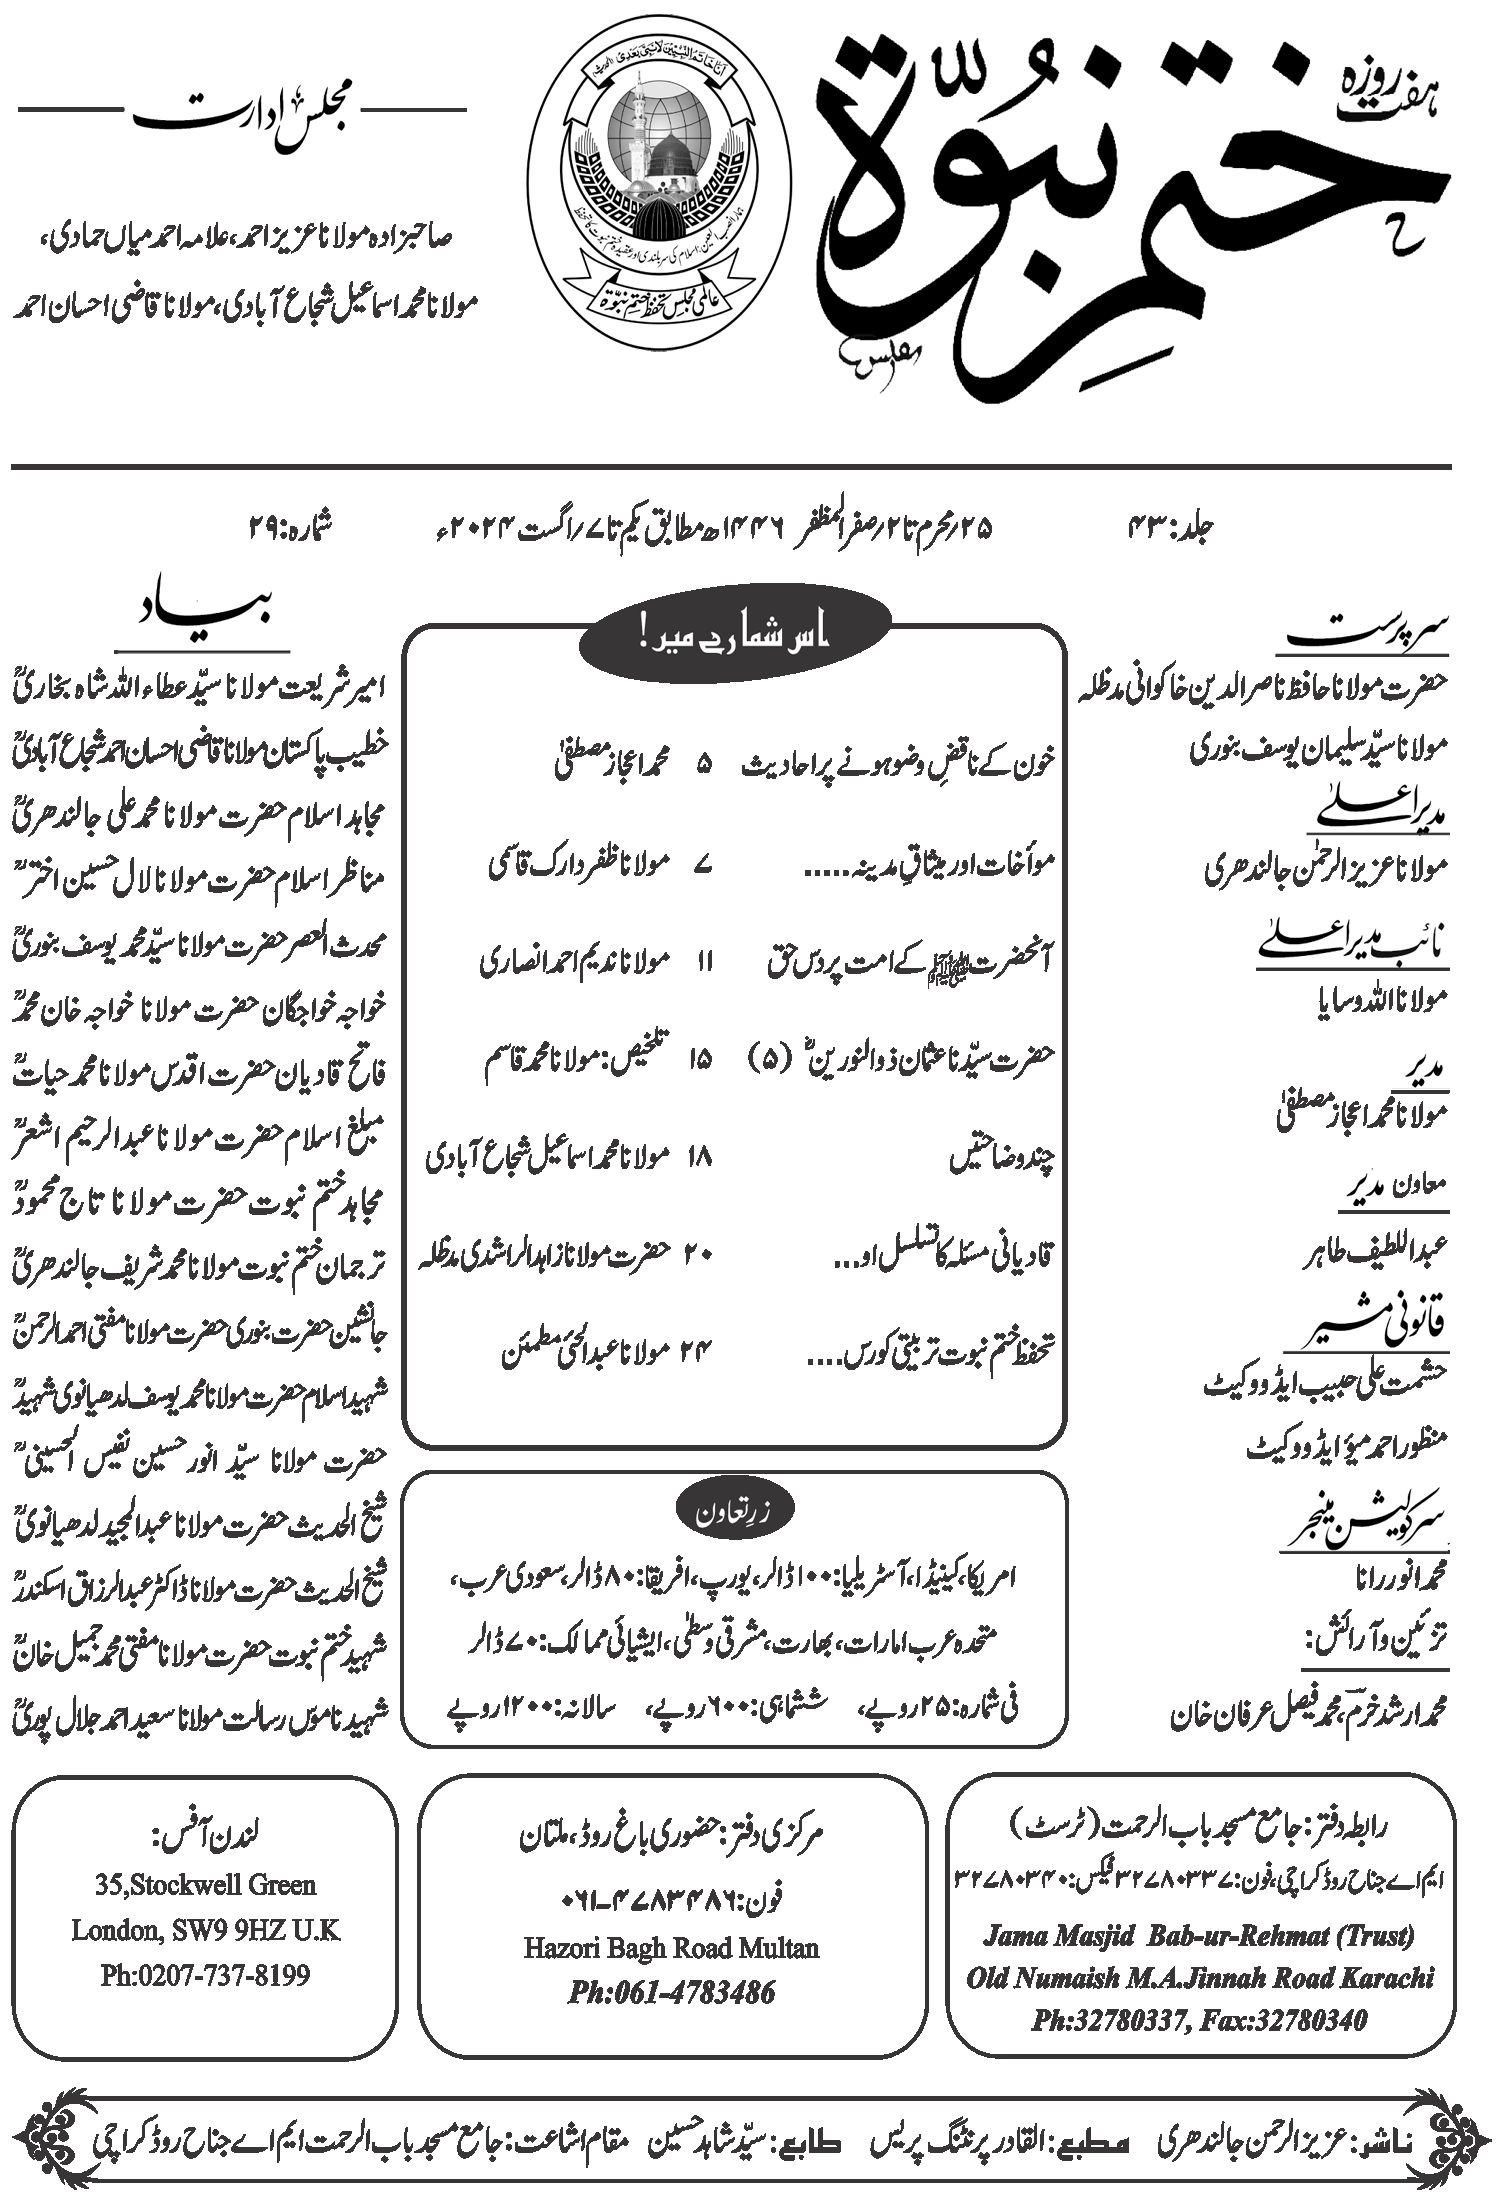 ہفت روزہ
ختم نبوۃ
مجلس ادارت
صاحبزادہ مولانا عزیز احمد، علامہ احمد میاں حمادی،
مولانا محمد اسماعیل شجاع آبادی، مولانا قاضی احسان احمد
انا خاتم النبیین لا نبی بعدی
عالمی مجلس تحفظ ختم نبوۃ
جلد: ۴۳
۲۵؍محرم تا ۲؍صفر المظفر ۱۴۴۶ھ مطابق یکم تا ۷؍اگست ۲۰۲۴ء
شمارہ: ۲۹
سرپرست
حضرت مولانا حافظ ناصر الدین خاکوانی مدظلہ
مولانا سیّد سلیمان یوسف بنوری
مدیر اعلیٰ
مولانا عزیز الرحمٰن جالندھری
نائب مدیر اعلیٰ
مولانا اللہ وسایا
مدیر
مولانا محمد اعجاز مصطفیٰ
معاون مدیر
عبداللطیف طاہر
قانونی مشیر
حشمت علی حبیب ایڈووکیٹ
منظور احمد میؤ ایڈووکیٹ
سرکولیشن مینجر
محمد انور رانا
تزئین و آرائش:
محمد ارشد خرم، محمد فیصل عرفان خان
اس شمارے میں!
خون کے ناقضِ وضو ہونے پر احادیث ۵ محمد اعجاز مصطفیٰ
مواٴخات اور میثاقِ مدینہ ..... ۷ مولانا ظفر دارک قاسمی
آنحضرت ﷺ کے امت پر دس حق ۱۱ مولانا ندیم احمد انصاری
حضرت سیّدنا عثمان ذوالنورینؓ (۵) ۱۵ تلخیص: مولانا محمد قاسم
چند وضاحتیں ۱۸ مولانا محمد اسماعیل شجاع آبادی
قادیانی مسئلہ کا تسلسل او... ۲۰ حضرت مولانا زاہد الراشدی مدظلہ
تحفظ ختم نبوت تربیتی کورس.... ۲۴ مولانا عبدالحئی مطمئن
زرِتعاون
امریکا، کینیڈا، آسٹریلیا: ۱۰۰ ڈالر، یورپ، افریقا: ۸۰ ڈالر، سعودی عرب،
متحدہ عرب امارات، بھارت، مشرقی وسطیٰ، ایشیائی ممالک: ۷۰ ڈالر
فی شمارہ: ۲۵ روپے، ششماہی: ۶۰۰ روپے، سالانہ: ۱۲۰۰ روپے
بیاد
امیر شریعت مولانا سیّد عطاء اللہ شاہ بخاریؒ
خطیب پاکستان مولانا قاضی احسان احمد شجاع آبادیؒ
مجاہد اسلام حضرت مولانا محمد علی جالندھریؒ
مناظر اسلام حضرت مولانا لال حسین اخترؒ
محدث العصر حضرت مولانا سیّد محمد یوسف بنوریؒ
خواجہ خواجگان حضرت مولانا خواجہ خان محمدؒ
فاتح قادیان حضرت اقدس مولانا محمد حیاتؒ
مبلغ اسلام حضرت مولانا عبدالرحیم اشعرؒ
مجاہد ختم نبوت حضرت مولانا تاج محمودؒ
ترجمان ختم نبوت مولانا محمد شریف جالندھریؒ
جانشین حضرت بنوری حضرت مولانا مفتی احمد الرحمنؒ
شہید اسلام حضرت مولانا محمد یوسف لدھیانوی شہیدؒ
حضرت مولانا سیّد انور حسین نفیس الحسینیؒ
شیخ الحدیث حضرت مولانا عبدالمجید لدھیانویؒ
شیخ الحدیث حضرت مولانا ڈاکٹر عبدالرزاق اسکندرؒ
شہید ختم نبوت حضرت مولانا مفتی محمد جمیل خانؒ
شہید ناموس رسالت مولانا سعید احمد جلال پوریؒ
رابطہ دفتر: جامع مسجد باب الرحمت (ٹرسٹ)
ایم اے جناح روڈ کراچی، فون: ۳۲۷۸۰۳۳۷ فیکس: ۳۲۷۸۰۳۴۰
Jama Masjid Bab-ur-Rehmat (Trust)
Old Numaish M.A.Jinnah Road Karachi
Ph:32780337, Fax:32780340
مرکزی دفتر: حضوری باغ روڈ، ملتان
فون: ۰۶۱-۴۷۸۳۴۸۶
Hazori Bagh Road Multan
Ph:061-4783486
لندن آفس:
35,Stockwell Green
London, SW9 9HZ U.K
Ph:0207-737-8199
ناشر: عزیز الرحمن جالندھری مطبع: القادر پرنٹنگ پریس طابع: سیّد شاہد حسین مقام اشاعت: جامع مسجد باب الرحمت ایم اے جناح روڈ کراچی